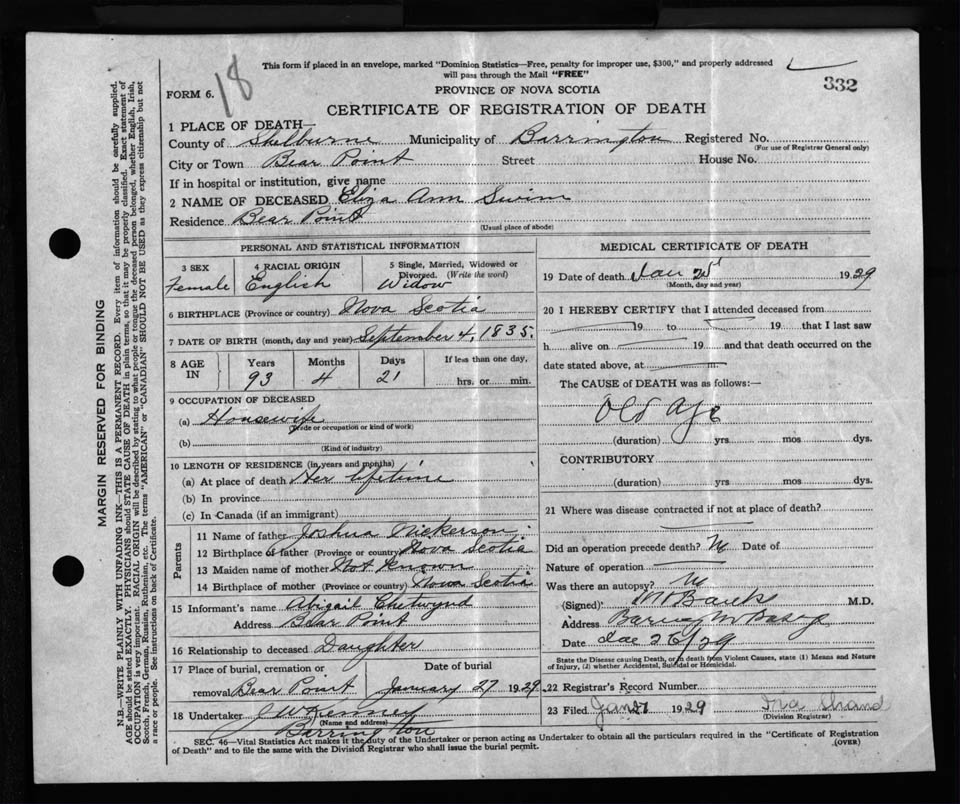 This form if placed in an envelope, marked "Dominion Statistics—Free, penalty for improper use, $300," and properly addressed
will pass through the Mail "FREE"
18
332
FORM 6.
PROVINCE OF NOVA SCOTIA
CERTIFICATE OF REGISTRATION OF DEATH
1 PLACE OF DEATH—
County of Shelburne Municipality of Barrington Registered No.
(For use of Registrar General only)
City or Town Bear Point Street House No.
If in hospital or institution, give name
2 NAME OF DECEASED Eliza Ann Swim
Residence Bear Point
(Usual place of abode)
PERSONAL AND STATISTICAL INFORMATION
3 SEX
Female
4 RACIAL ORIGIN
English
5 Single, Married, Widowed or
Divorced. (Write the word)
Widow
6 BIRTHPLACE (Province or country) Nova Scotia
7 DATE OF BIRTH (month, day and year) September 4, 1835.
8 AGE IN
Years Months Days If less than one day,
93 4 21 hrs. or min.
9 OCCUPATION OF DECEASED
(a) Housewife
(Trade or occupation or kind of work)
(b)
(Kind of industry)
10 LENGTH OF RESIDENCE (in years and months)
(a) At place of death Her lifetime
(b) In province
(c) In Canada (if an immigrant)
Parents
11 Name of father Joshua Nickerson
12 Birthplace of father (Province or country) Nova Scotia
13 Maiden name of mother Not Known
14 Birthplace of mother (Province or country) Nova Scotia
15 Informant's name Abigail Chetwynd
Address Bear Point
16 Relationship to deceased Daughter
17 Place of burial, cremation or Date of burial
removal Bear Point January 27 1929
18 Undertaker J W Kenney
(Name and address)
Barrington
MEDICAL CERTIFICATE OF DEATH
19 Date of death Jan 25 1929
(Month, day and year)
20 I HEREBY CERTIFY that I attended deceased from
19 to 19 that I last saw
h alive on 19 and that death occurred on the
date stated above, at m.
The CAUSE of DEATH was as follows:—
Old Age
(duration) yrs mos dys.
CONTRIBUTORY
(duration) yrs mos dys.
21 Where was disease contracted if not at place of death?
Did an operation precede death? No Date of
Nature of operation
Was there an autopsy? No
(Signed) Banks M.D.
Address Barrington
Date 26/29
State the Disease causing Death, or in death from Violent Causes, state (1) Means and Nature
of Injury, (2) whether Accidental, Suicidal or Homicidal.
22 Registrar's Record Number
23 Filed Jan 1929 Ira
(Division Registrar)
SEC. 46—Vital Statistics Act makes it the duty of the Undertaker or person acting as Undertaker to obtain all the particulars required in the "Certificate of Registration
of Death" and to file the same with the Division Registrar who shall issue the burial permit.
(OVER)
MARGIN RESERVED FOR BINDING
N.B.—WRITE PLAINLY WITH UNFADING INK—THIS IS A PERMANENT RECORD. Every item of information should be carefully supplied.
AGE should be stated EXACTLY. PHYSICIANS should STATE CAUSE OF DEATH in plain terms, so that it may be properly classified. Exact statement of
OCCUPATION is very important. RACIAL ORIGIN will be described by stating to what people or tongue the deceased person belonged, whether English, Irish,
Scotch, French, German, Russian, Ruthenian, etc. The terms "AMERICAN" or "CANADIAN" SHOULD NOT BE USED as they express citizenship but not
a race or people. See instructions on back of Certificate.